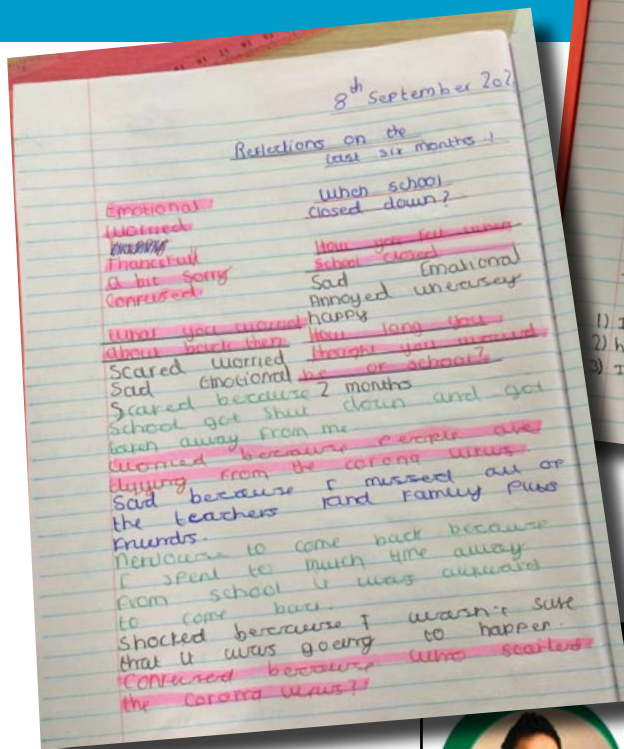 8th September 202
Reflections on the
last six months!
When school
closed down?
Emotional
Worried
Thanksfull
a bit sorry
Confused
How you felt when
School closed
Sad Emotional
Annoyed uneasey
happy
What you worried
about back then
Scared worried
Sad Emotional
How long you
thought you would
be of school?
2 months
Scared because
School got shut down and got
taken away from me
Worried because people are
dying from the corona virus
Sad because I missed all of
the teachers and family plus
friends.
Nervouse to come back because
I spent to much time away
from school it was awkward
to come back.
Shocked because I wasn't sure
that it was goeing to happen.
Confused because who started
the corona virus?
1) I
2) h
3) I